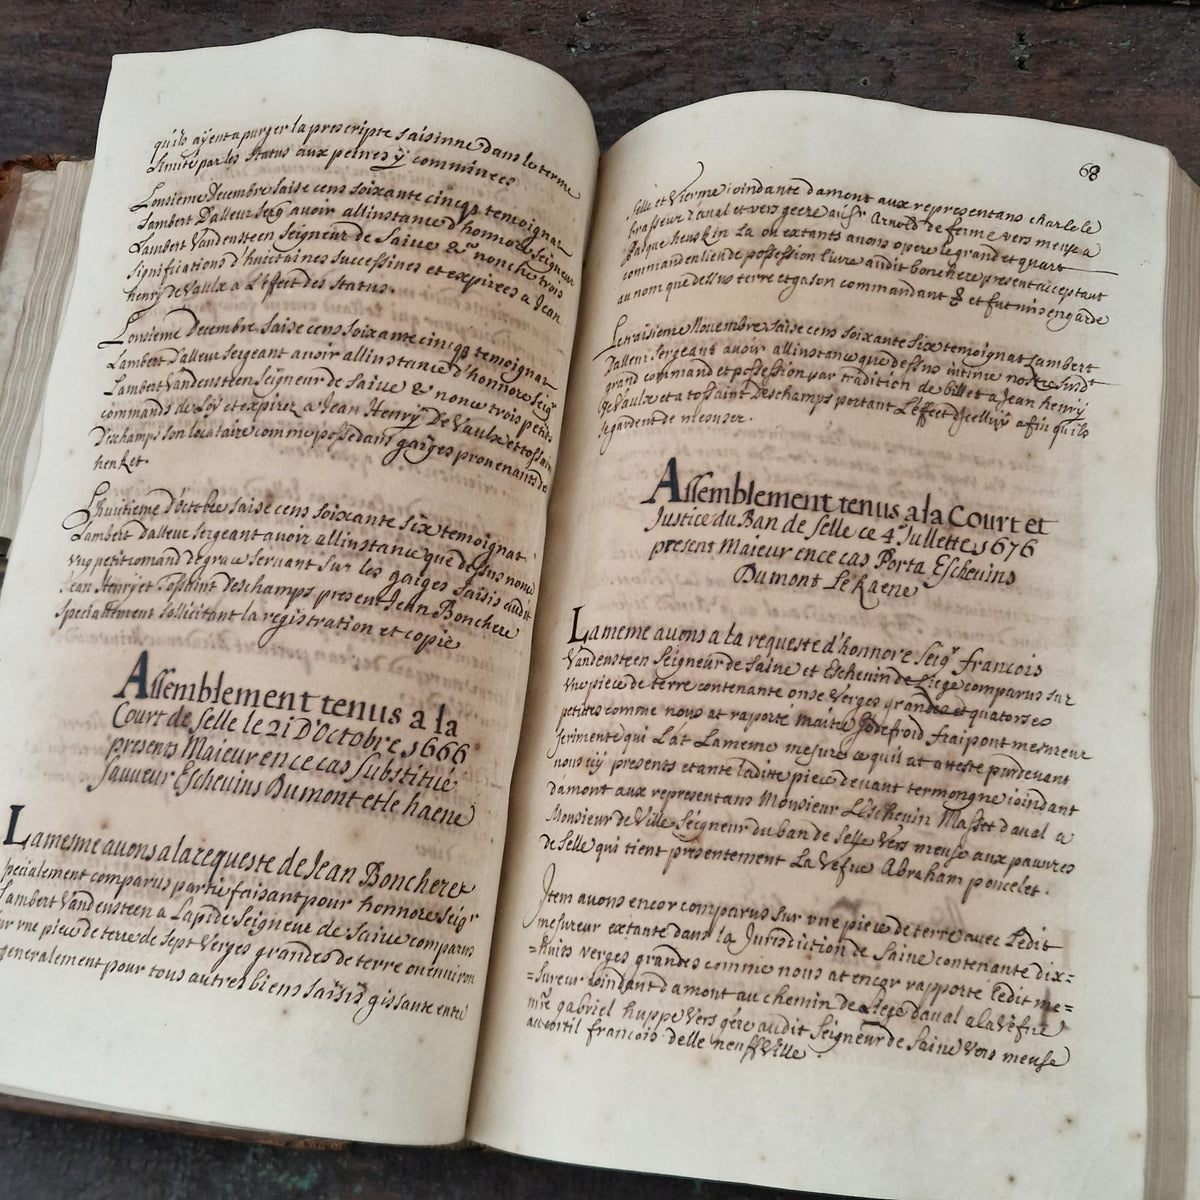 qu'ils ayent a purger la prescripte saisinne dans le terme
limité par les status aux peines y comminees
Lonsieme Decembre saise cens soixante cincqz temoignat
Lambert Dalleur serg avoir allinstance d'honnore seigneur
Lambert Vandensteen seigneur de Saive & nonche trois
significations d'huictaines successines et expirees a Jean
henry de Vaulx a L'effect des status.
Lonsieme Decembre saise cens soixante cincqz temoignat
Lambert Dalleur sergeant avoir allinstance d'honnore seigr
Lambert Vandensteen seigneur de Saive & nonce trois petits
commands de Loÿ et expirez a Jean Henrÿ De Vaulx et tossain
Deschamps son locataire comme possedans gaiges provenants de
henket.
Lhuitieme d'octobre saise cens soixante six temoignat
Lambert dalleur sergeant avoir allinstance que dessus nonce
vng petit comand de grace servant sur les gaiges saisis dudit
Jean Henri et Tossaint Deschamps present Jean Bonchere
specialement sollicitant la registration et copie
Assemblement tenus a la
Court de selle le 21 D'Octobre 1666
presents Maieur en ce cas substitué
sauveur Eschevins Dumont et le haene
La mesme avons a la requeste de Jean Boncheret
specialement comparus partie faisant pour honnore seigr
Lambert Vandensteen a Lapide seigneur de saive comparus
sur vne piece de terre de sept Verges grandes de terre ou environ
generalement pour tous autres biens saisis gissante entre
68
selle et Vierme ioindante damont aux representans charle le
brasseur daval et vers geere au sr Arnold de ferme vers meuse a
Pasque heuskin La ou extants avons opere le grand et quart
command en lien de possession livre audit bonchere present acceptant
au nom que dessus terre et gason commandant & et fut mis en garde
Le traisieme Novembre saise cens soixante six temoignat Lambert
Dalleur sergeant avoir allinstance que dessus intime nostre
grand command et possession par tradition de billet a Jean henrÿ
De Vaulx et a tossaint Deschamps portant L'effect afin qu'ils
se gardent de mesuser.
Assemblement tenus a la Court et
Justice du Ban de selle ce 4e Jullette 1676
present Maieur en ce cas Porta Eschevins
Dumont Le haene
La meme avons a la requeste d'honnore seigr francois
Vandensteen seigneur de saive et Eschevin de Liege comparus sur
vne piece de terre contenante onse Verges grandes et quatorse
petites comme nous at raporté maitre Godefroid fraipont mesureur
serimenté qui L'at Lameme mesuré ce qu'il at atteste pardevant
nous iÿ presents etante ladite piece devant termongne ioindant
d'amont aux representans Monsieur L'eschevin Masset daval a
Monsieur de Ville seigneur du ban de selle vers meuse aux pauvres
de selle qui tient presentement La Vefue Abraham poncelet.
Item avons encor comparus sur vne piece de terre avec Ledit
mesureur extante dans la Jurisdiction de saive contenante dix=
=huits verges grandes comme nous at encor rapporté ledit me=
=sureur ioindant d'amont au chemin de Liege daval a la Vefue
mre gabriel huppe vers gere audit seigneur de Saive vers meuse
au cortil francois delle neuffville